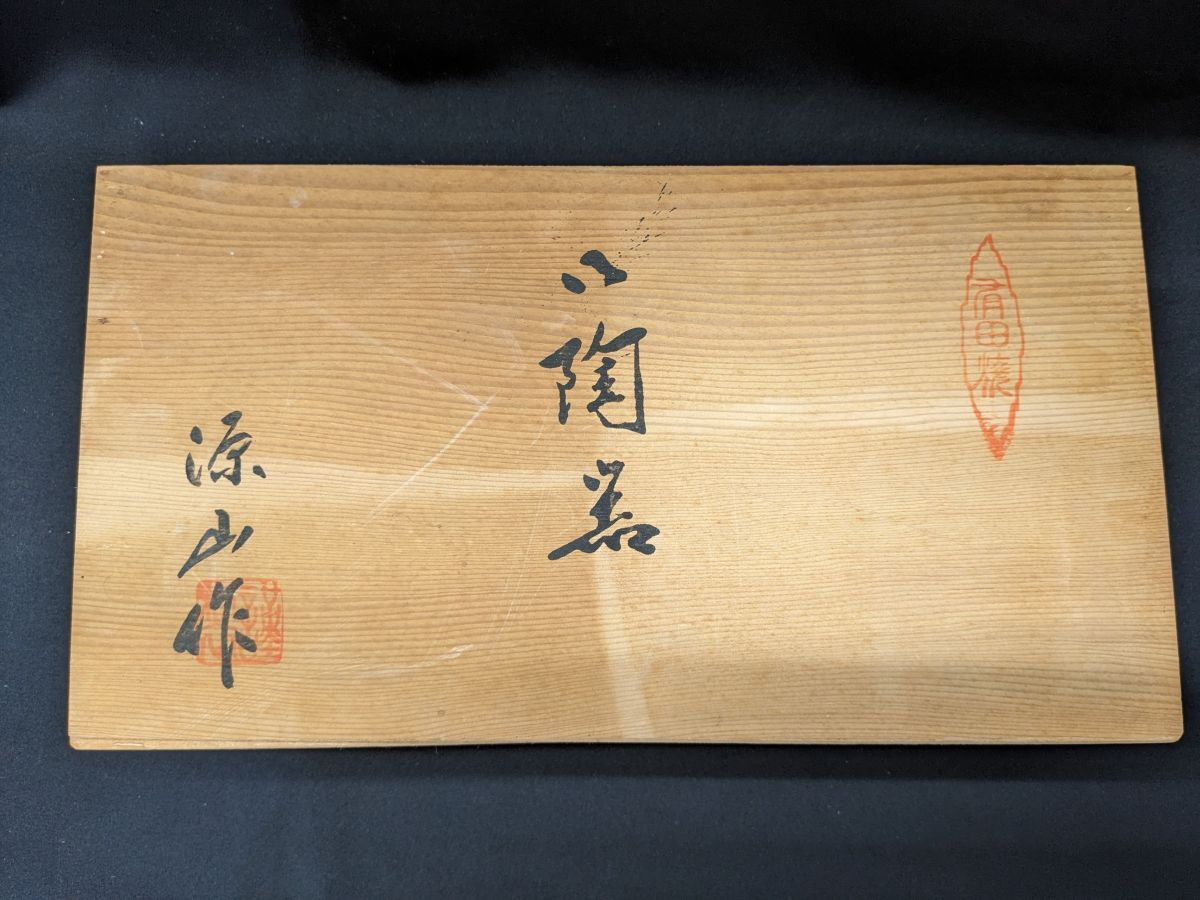 有田焼
御陶器
源山作